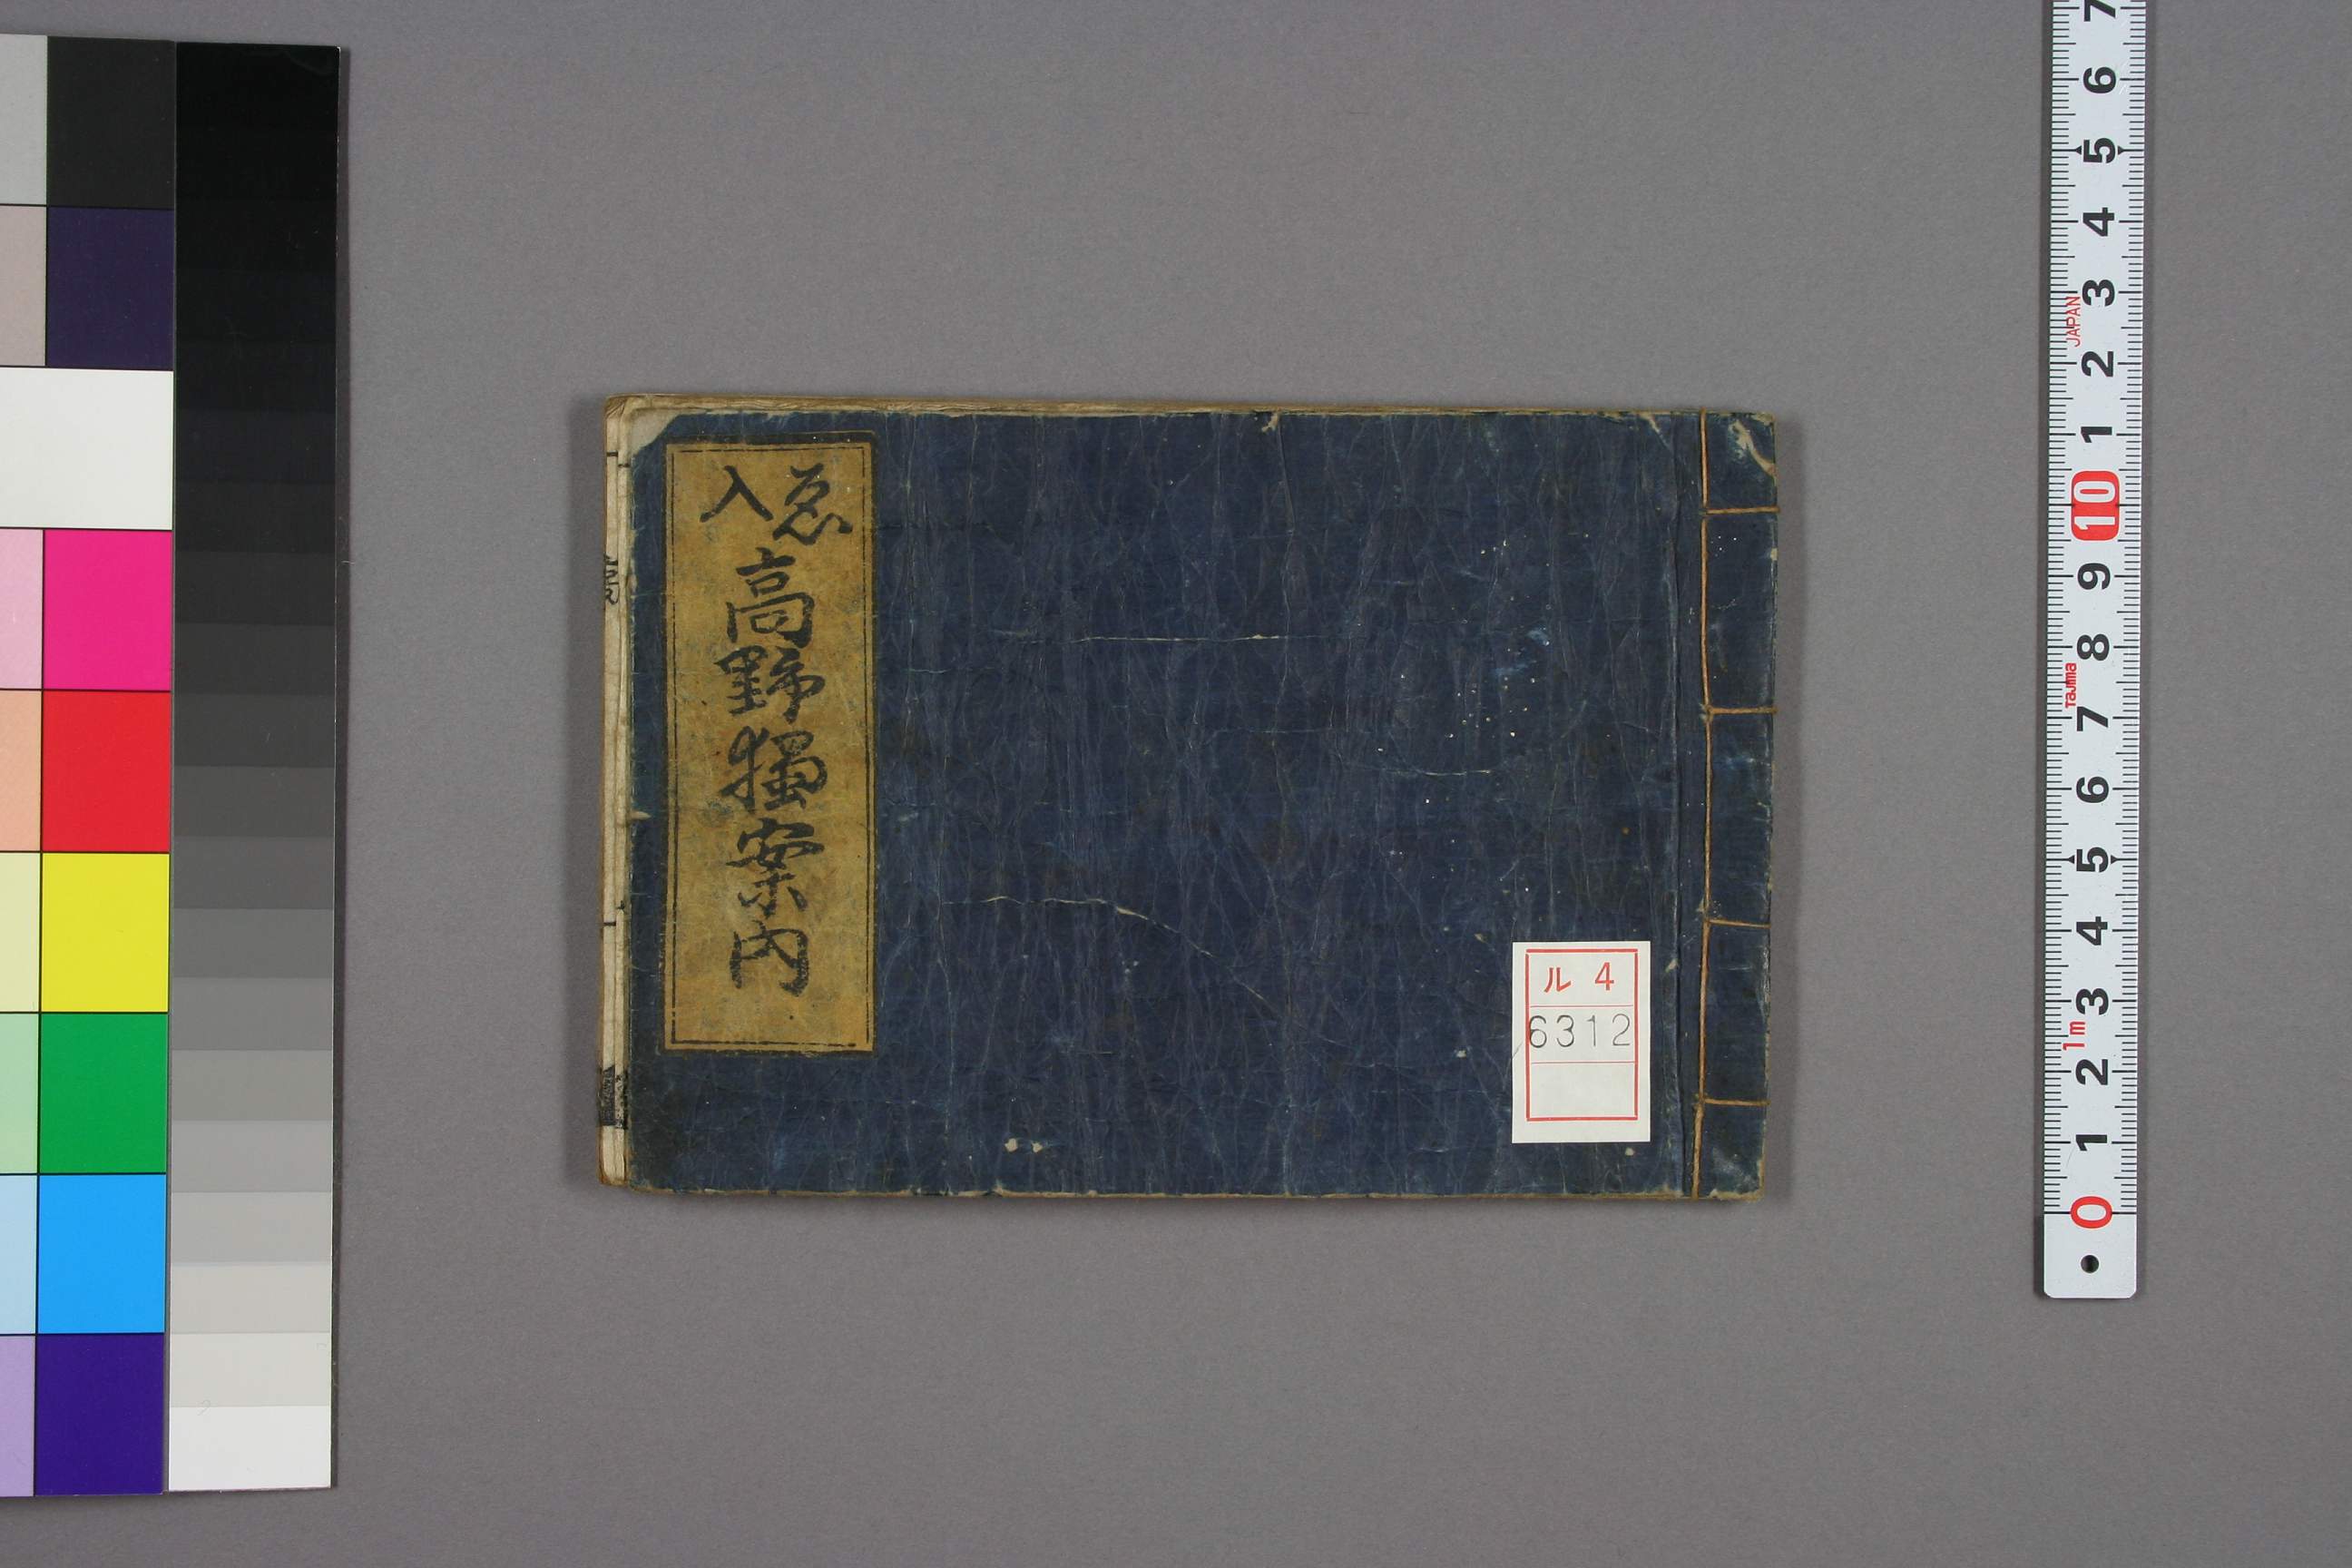 ゑ入
高野獨案内
ル 4
6312
0 1 2 3 4 5 6 7 8 9 10 1 2 3 4 5 6 7
1m
Tajima
JAPAN